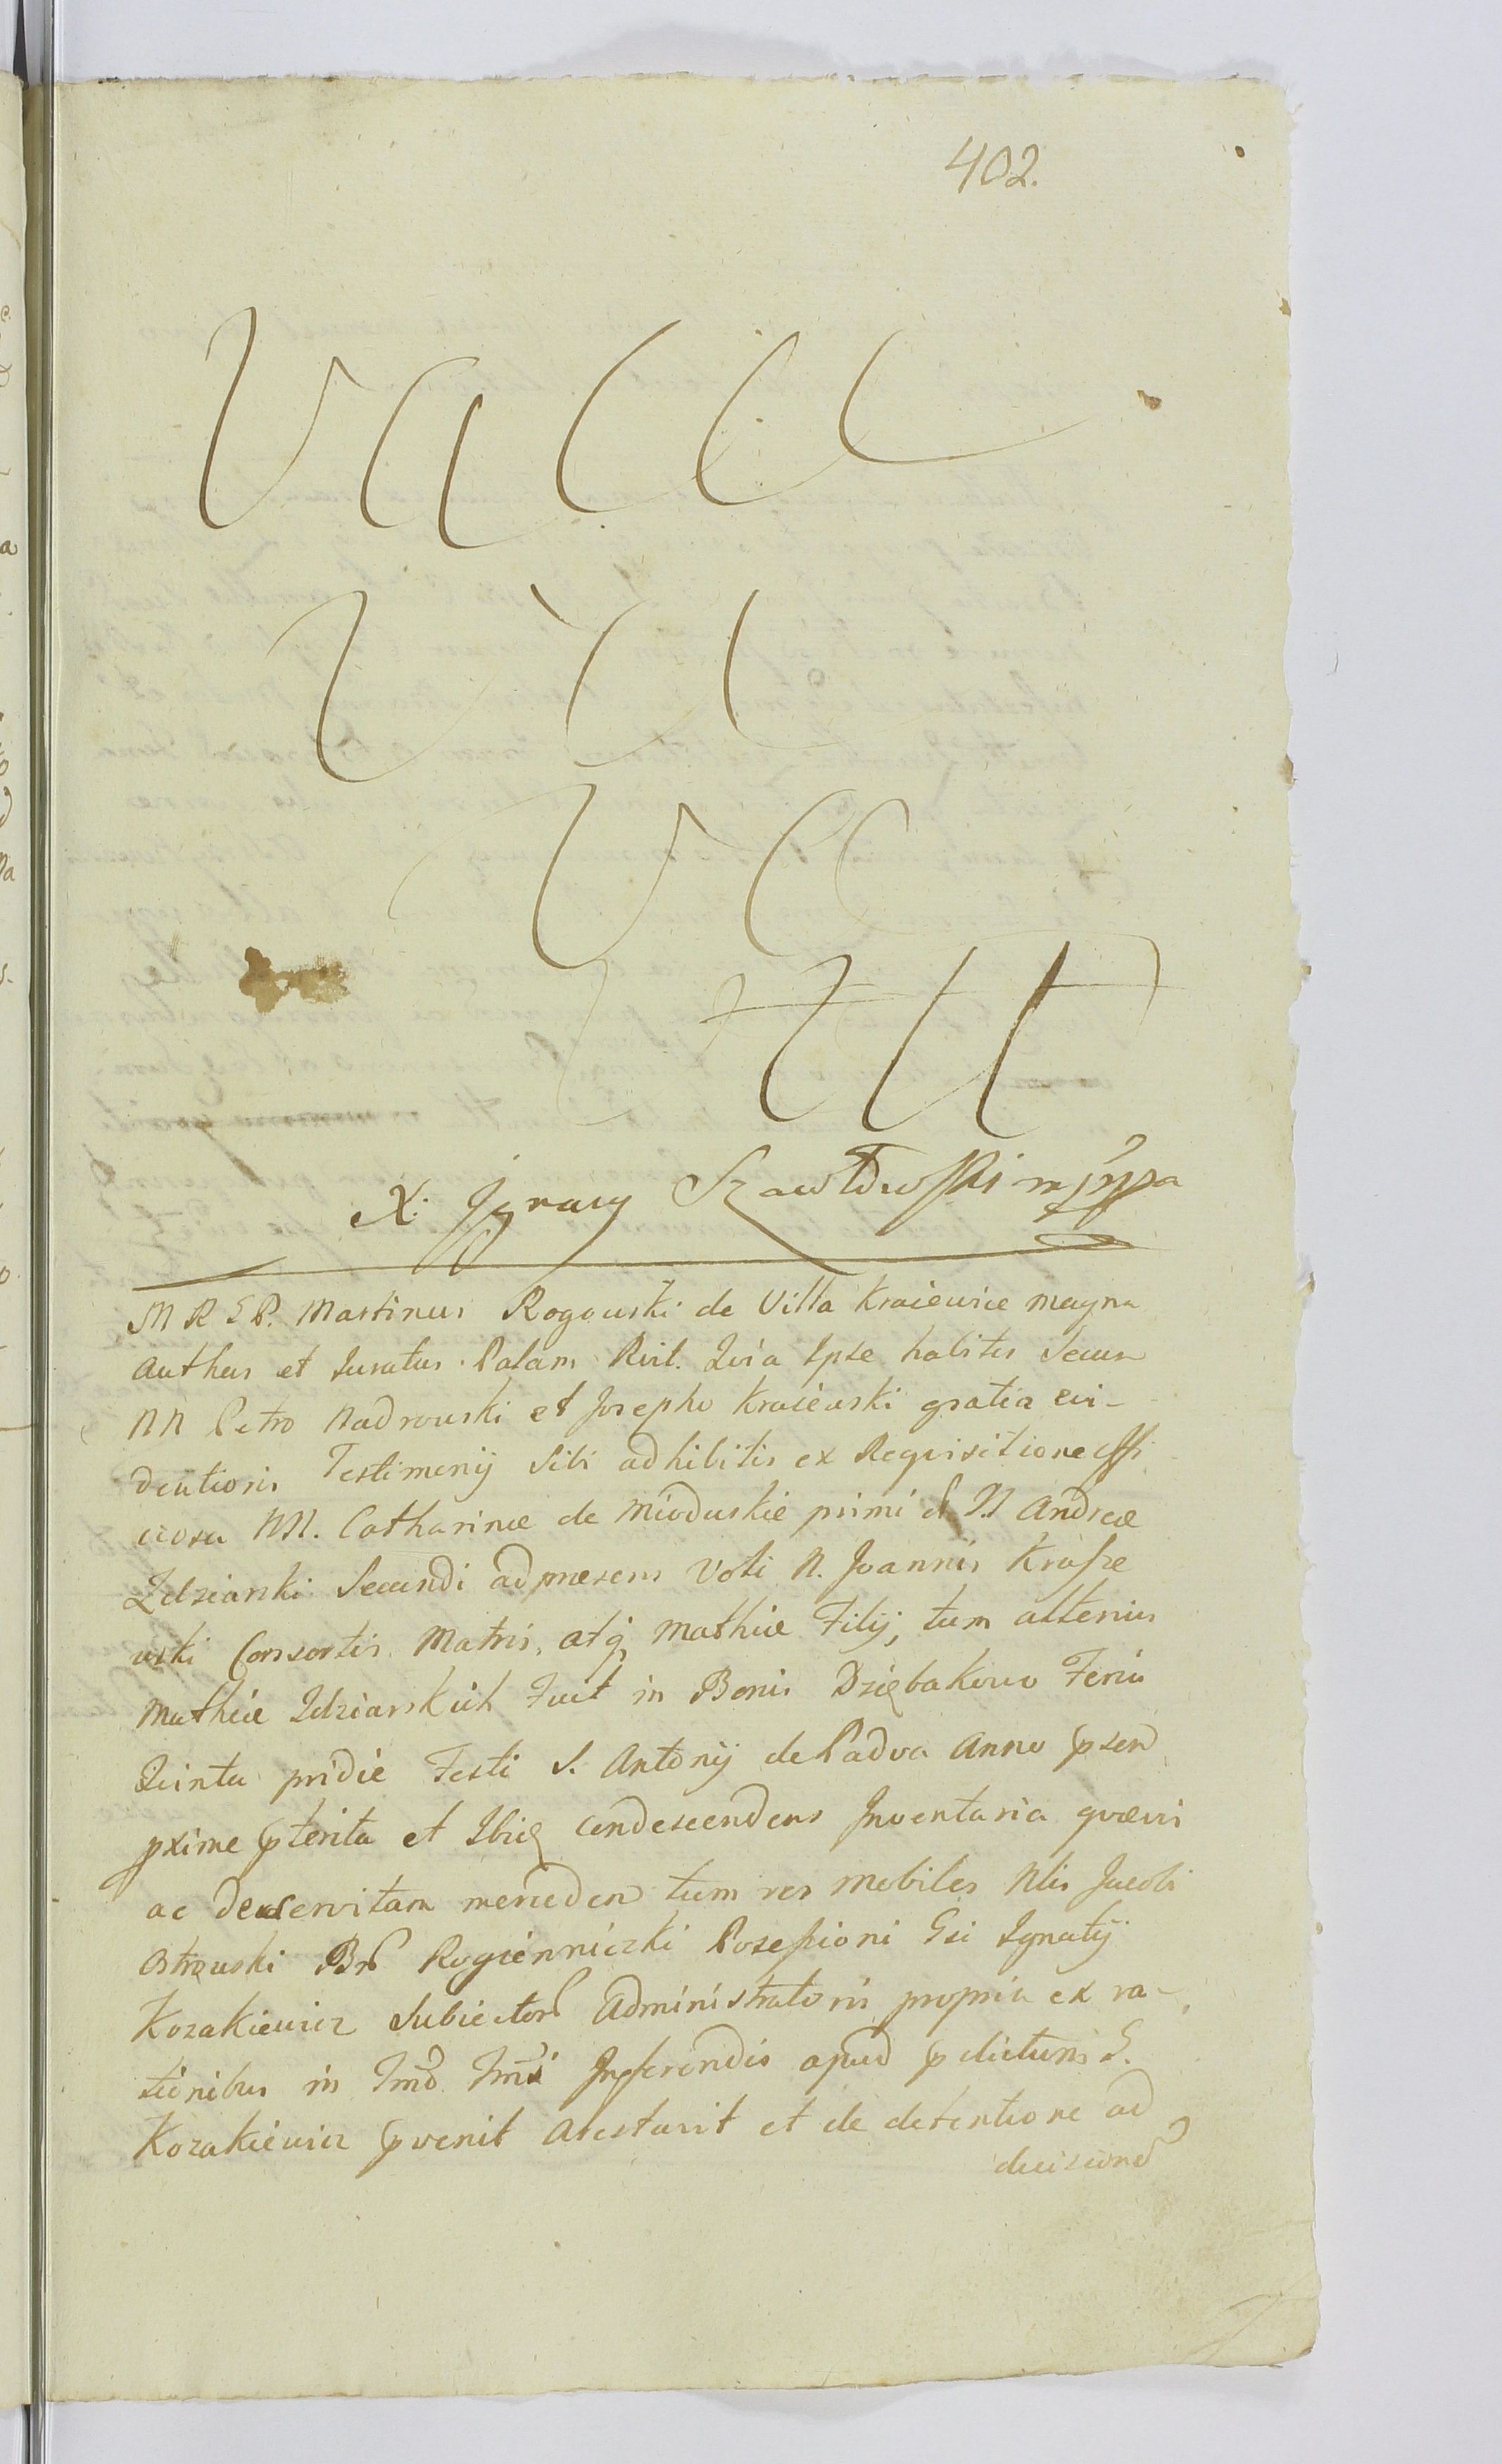 402.
Vacat
X. Jgnacy Szawłowski mppa
M R S P. Martinus Rogowski de Villa Kraiewice magna
Author et Iuratus. Palam Rvit. Qvia Ipse habitis Secum
NN Petro Nadrowski et Josepho Kraiewski gratia evi-
dentioris Testimonij Sibi adhibitis ex Reqvisitione Offi
ciosa NN. Catharinæ de Mioduskie primi et N Andreæ
Zdziarski Secundi ad præsens Voti N. Joannis Krasze
wski Consortis Matris, atq Mathiæ Filij, tum alterius
Mathiæ Zdziarskich Fuit in Bonis Dziębakowo Feria
Qvinta pridie Festi S. Antonij de Padva Anno psen
pxime pterita et Ibiq condescendens Inventaria qværi
ac deservitam merceden tum res mobiles Nlis Jacobi
Ostrowski Br Rogienniczki Possessioni Gsi Ignatij
Kozakiewicz Subiector Administratoris propria ex ra-
tionibus in Inferendis apud pdictum G.
Kozakiewicz pvenit Arestavit et de detentione ad
decisione